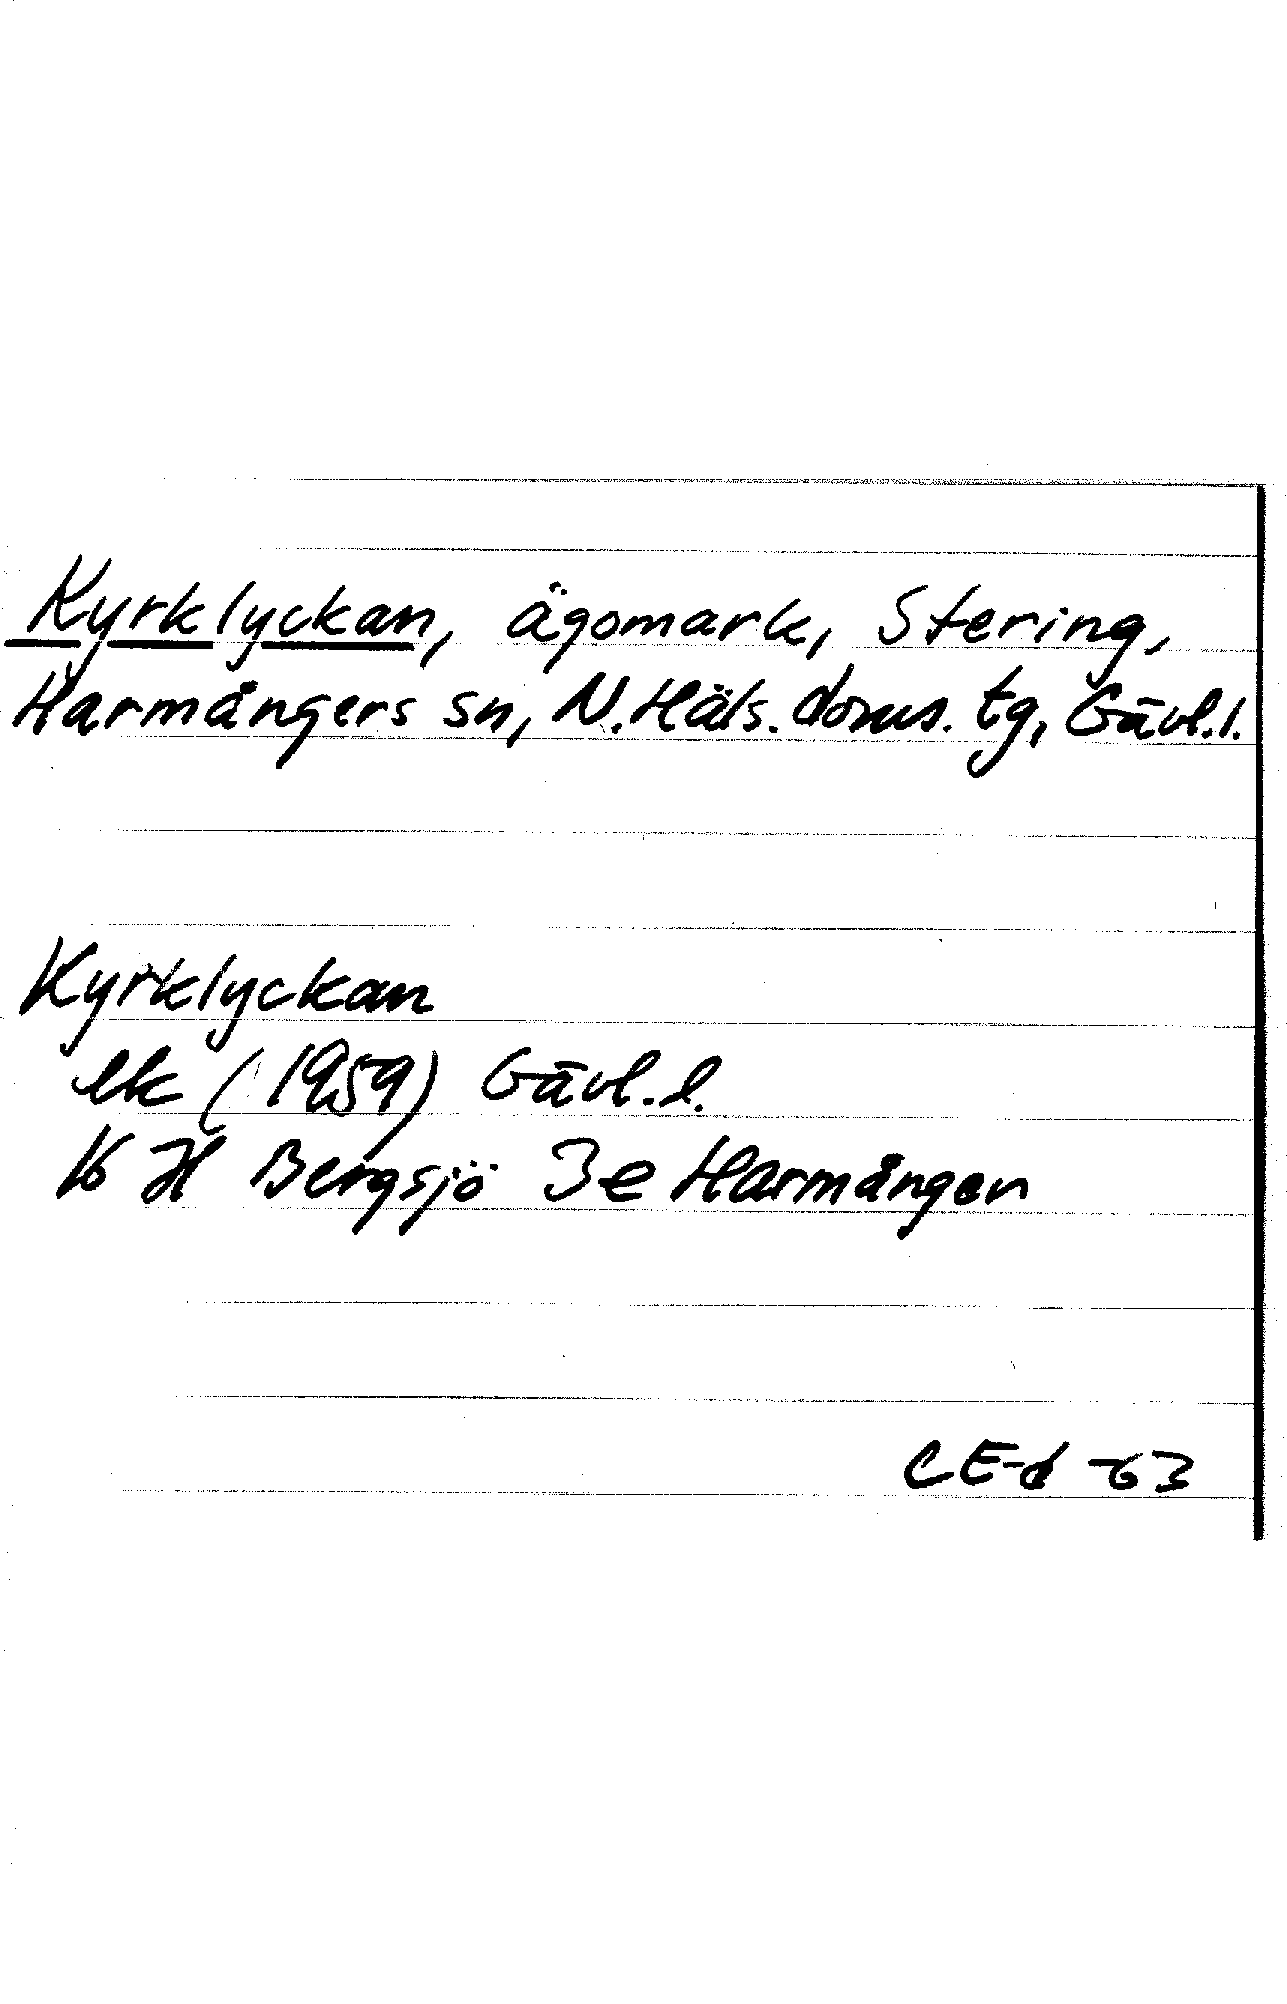 Kyrklyckan, ägomark, Stering,
Harmångers sn, N. Häls. doms. tg, Gävl. l.
Kyrklyckan
ek (1959) Gävl. l.
16 H Bergsjö 3e Harmånger
CE-d -63